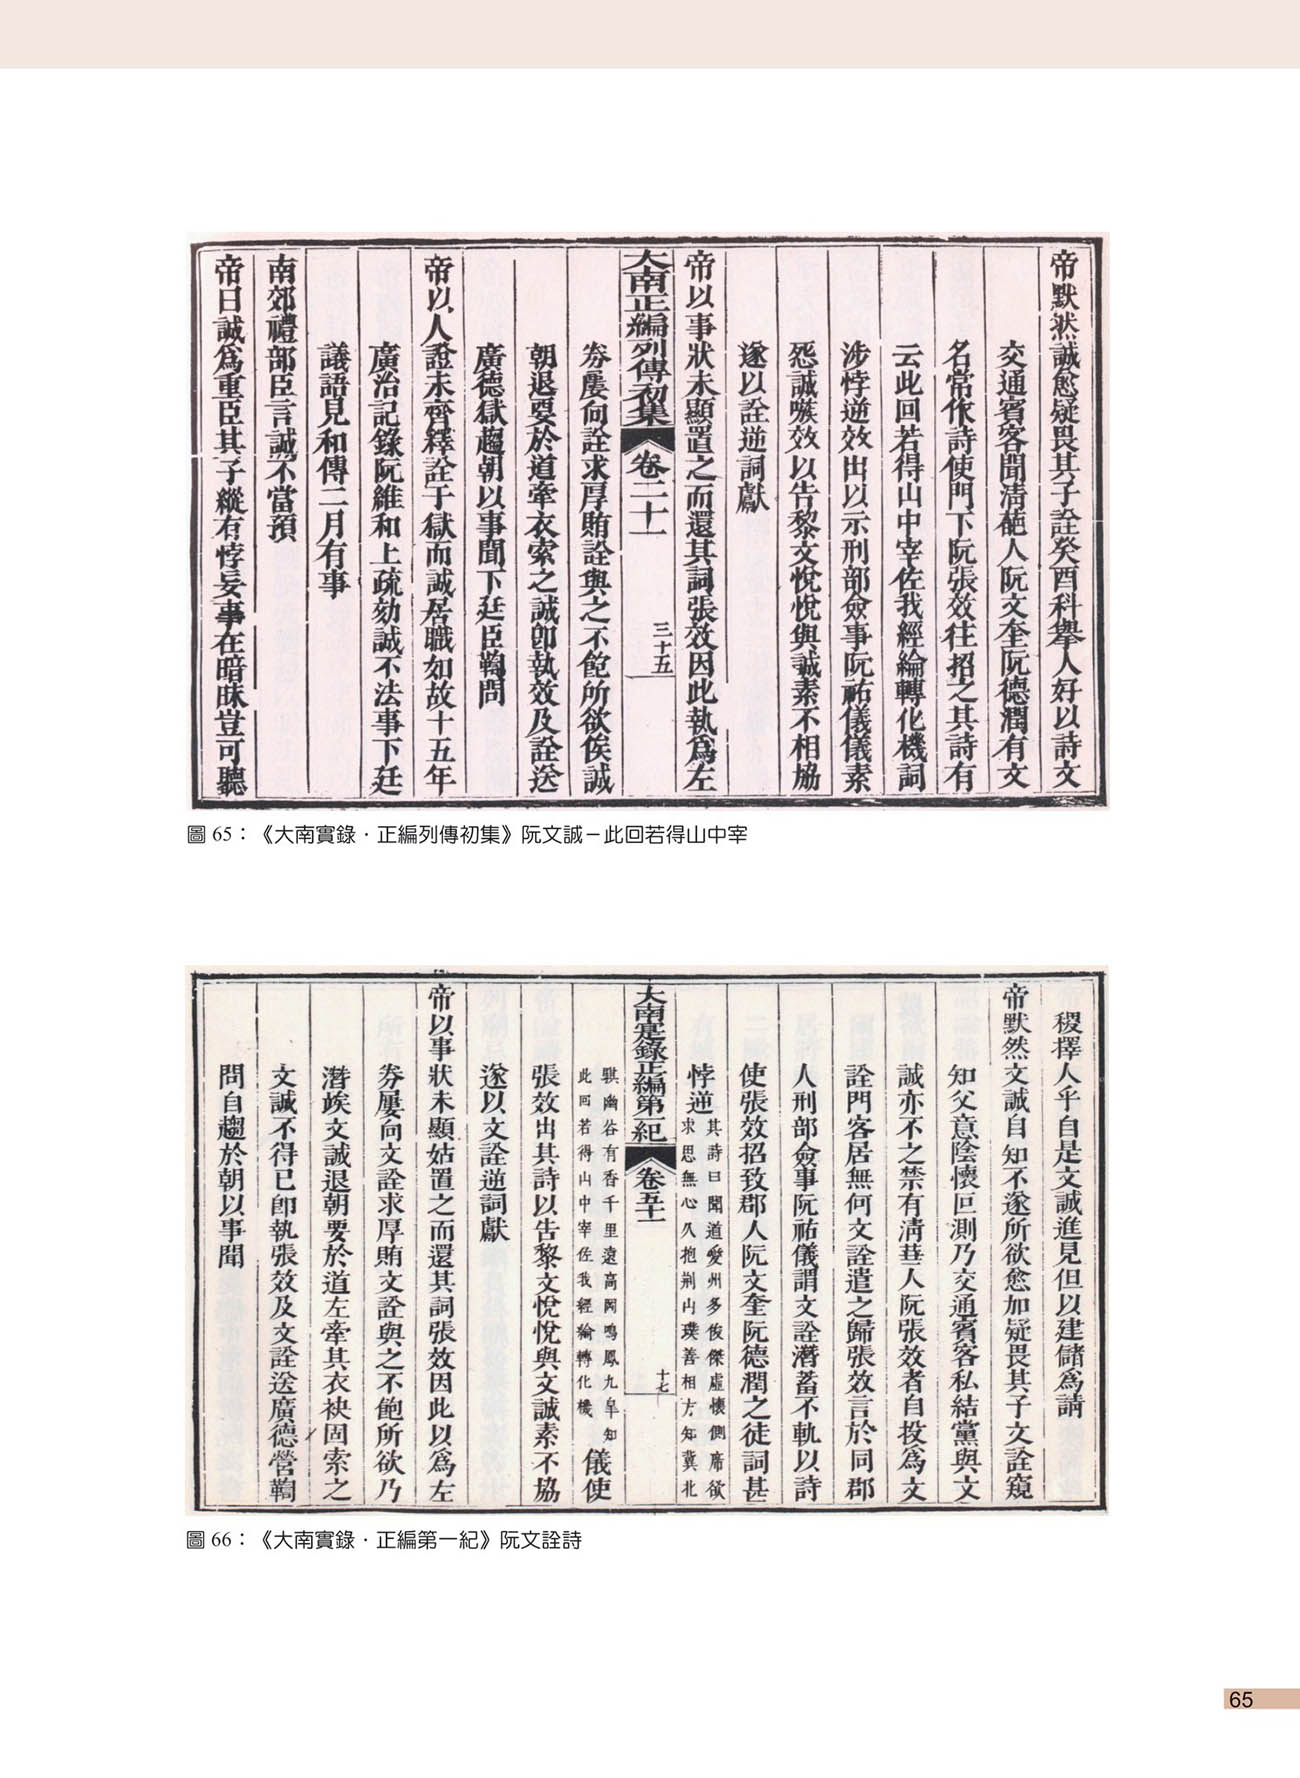 帝默然誠愈疑畏其子詮癸酉科舉人好以詩文
交通賓客聞清葩人阮文奎阮德潤有文
名常作詩使門下阮張效往招之其詩有
云此回若得山中宰佐我經綸轉化機詞
涉悖逆效出以示刑部僉事阮祐儀儀素
怨誠嗾效以告黎文悅悅與誠素不相協
遂以詮逆詞獻
帝以事狀未顯置之而還其詞張效因此執爲左
大南正編列傳初集 卷二十一 三十五
券屢向詮求厚賄詮與之不飽所欲俟誠
朝退要於道牽衣索之誠卽執效及詮送
廣德獄趨朝以事聞下廷臣鞫問
帝以人證未齊釋詮于獄而誠居職如故十五年
廣治記錄阮維和上疏劾誠不法事下廷
議語見和傳二月有事
南郊禮部臣言誠不當預
帝曰誠爲重臣其子縱有悖妄事在暗昧豈可聽
圖 65：《大南實錄．正編列傳初集》阮文誠－此回若得山中宰
稷擇人乎自是文誠進見但以建儲爲請
帝默然文誠自知不遂所欲愈加疑畏其子文詮窺
知父意陰懷叵測乃交通賓客私結黨與文
誠亦不之禁有清葩人阮張效者自投爲文
詮門客居無何文詮遣之歸張效言於同郡
人刑部僉事阮祐儀謂文詮潛蓄不軌以詩
使張效招致郡人阮文奎阮德潤之徒詞甚
悖逆 其詩曰聞道愛州多俊傑虛懷側席欲
求思無心久抱荆山璞善相方知冀北
大南寔錄正編第一紀 卷五十一 十七
騏幽谷有香千里遠高岡鳴鳳九皐知
此回若得山中宰佐我經綸轉化機 儀使
張效出其詩以告黎文悅悅與文誠素不協
遂以文詮逆詞獻
帝以事狀未顯姑置之而還其詞張效因此以爲左
券屢向文詮求厚賄文詮與之不飽所欲乃
潛竢文誠退朝要於道左牽其衣袂固索之
文誠不得已卽執張效及文詮送廣德營鞫
問自趨於朝以事聞
圖 66：《大南實錄．正編第一紀》阮文詮詩
65